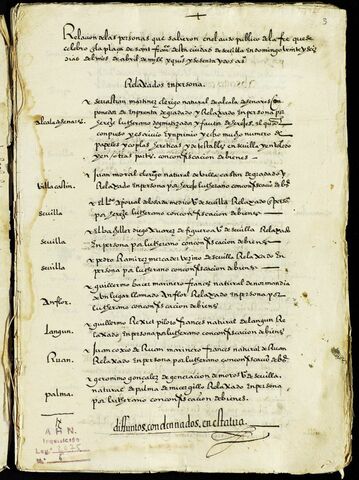 3
Relacion de las personas que salieron en el auto publico de la fee que se
celebro en la plaça de sant franco desta ciudad de sevilla en domingo veinte y seis
dias del mes de abril de mill y quis y sesenta y dos as
Relaxados en persona.
x sebastian martinez clerigo natural de alcala de henares con
coroneda de inpronta degradado y Relaxado en persona por
hereje lutherano dogmatizador y fautor de herejes el qual
conpuso y escrivio y inprimio y echo mucho numero de
papeles y coplas hereticas y detestables en sevilla y en toledo
y en otras partes con confiscacion de bienes
alcala de henares
x juan moral clerigo natural de villa castin degradado y
Relaxado en persona por hereje lutherano con confiscacion de bs
Villa castin.
x el ldo xpoval de medico vo de sevilla Relaxado en perso
por hereje lutherano con confiscacion de bienes
sevilla
x el bachiller diego xuarez de figueroa vo de sevilla Relaxado
en persona por lutherano con confiscacion de bienes
sevilla
x pedro Ramirez mercader vezino de sevilla Relaxado en
persona por lutherano con confiscacion de bienes
sevilla
x guillermo bacer marinero frances natural de normandia
de un lugar llamado Anflor Relaxado en persona por
lutherano con confiscacion de bienes
Anflor.
x guillermo piloto frances natural de langun Re
laxado en persona por lutherano con confiscacion de bienes
Langun.
x juan coxio de Ruan marinero frances natural de Ruan
Relaxado en persona por lutherano con confiscacion de bs
Ruan.
x geronimo gonzalez de generacion de moros vo de sevilla
natural de palma de micer gilio Relaxado en persona
por lutherano con confiscacion de bienes.
palma.
A H N
Inquisición
Leg. 2075
Nº
difuntos, condennados, en estatua.